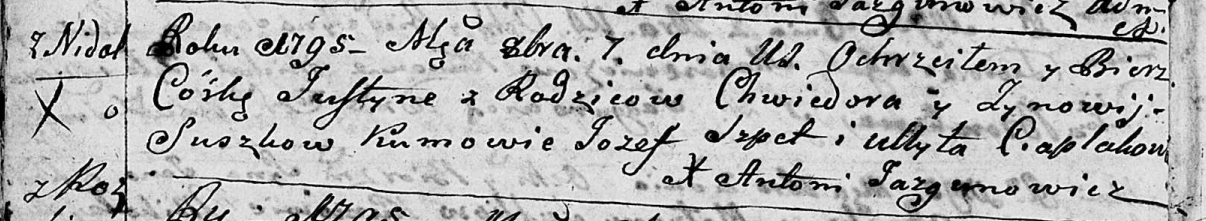 X Antoni Jazgunowicz Adm
z Nidal Roku 1795 Msca 8bra. 7. dnia Ochrzcitem y Bierz
X o Córkę Justynę z Rodzicow Chwiedora y Zynowij-
Suszkow Kumowie Jozef Szpet i Ullyta Czaplakow
X Antoni Jazgunowicz
z Roz
1795